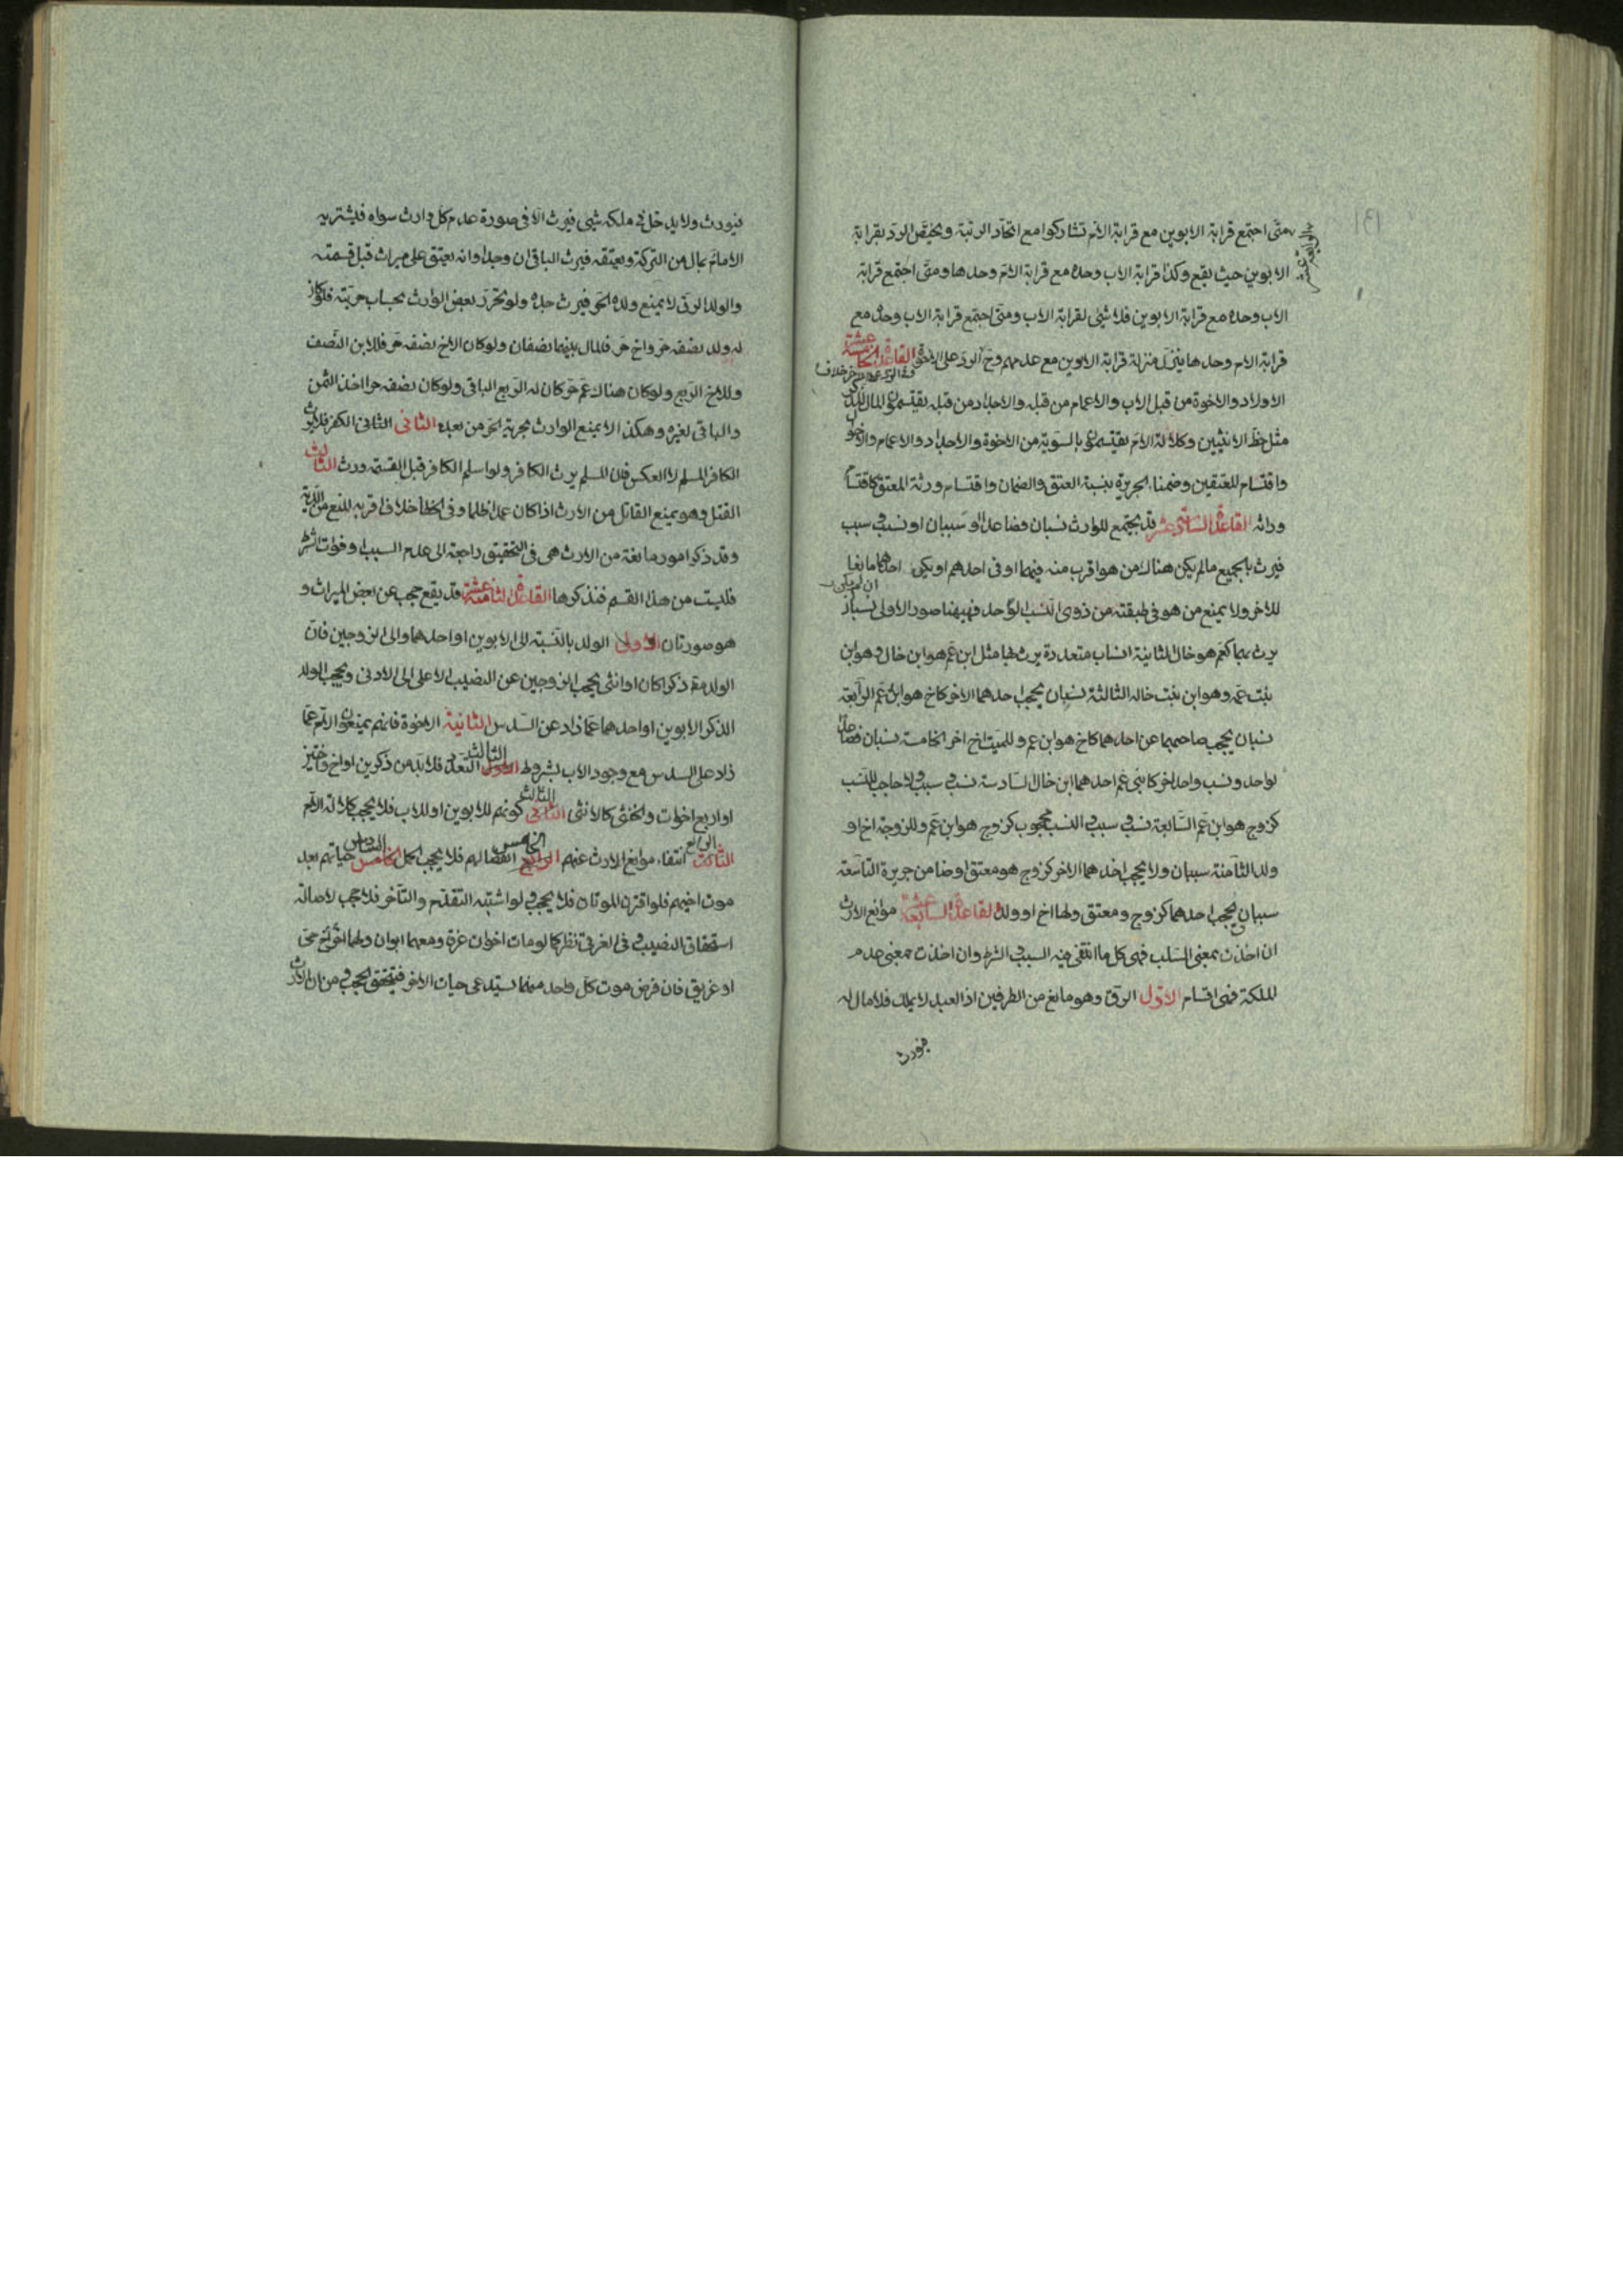 متى اجتمع قرابة الابوين مع قرابة الام تشاركوا مع اتحاد الرتبة ويختص الرد بقرابة
الابوين حيث يقع وكذا قرابة الاب وحده مع قرابة الام وحدها ومتى اجتمع قرابة
الاب وحده مع قرابة الابوين فلا شئ لقرابة الاب ومتى اجتمع قرابة الاب وحده مع
قرابة الام وحدها ينزل منزلة قرابة الابوين مع عدمهم وفى الرد على الاخوة القاعدة الخامسة عشرة
الاولاد والاخوة من قبل الاب والاعمام من قبله والاجداد من قبله يقتسمون المال للذكر
مثل حظ الانثيين وكلالة الام يقتسمون بالسوية من الاخوة والاجداد والاعمام والاخوال
واقتسام المعتقين وضمناء الجريرة بنسبة العتق والضمان واقتسام ورثة المعتق كاقتسام
وراثه القاعدة السادسة عشر قد يجتمع للوارث نسبان فصاعدا او سببان او نسب وسبب
فيرث بالجميع مالم يكن هناك من هو اقرب منه فيهما او فى احدهم او يكن احدهما مانعا
للاخر ولا يمنع من هو فى طبقته من ذوى النسب الواحد فهيهنا صور الاولى نسبان
يرث بهما كعم هو خال الثانية انساب متعددة يرث بها مثل ابن عم هو ابن خال وهو ابن
بنت عمه وهو ابن بنت خاله الثالثة نسبان يحجب احدهما الاخر كاخ هو ابن عم الرابعة
نسبان يحجب صاحبهما عن احدهما كاخ هو ابن عم وللميت اخ اخر الخامسة نسبان فصاعدا
لواحد ونسب واحد لاخر كابنى عم احدهما ابن خال السادسة نسب وسبب ولا حاجب للنسب
كزوج هو ابن عم السابعة نسب وسبب والنسب محجوب كزوج هو ابن عم وللزوجة اخ او
ولد الثامنة سببان ولا يحجب احدهما الاخر كزوج هو معتق او ضامن جريرة التاسعة
سببان يحجب احدهما كزوج ومعتق ولها اخ او ولد القاعدة السابعة عشرة موانع الارث
ان اخذت بمعنى السلب فهى كل ما انتفى فيه السبب والشرط وان اخذت بمعنى عدم
الملكة فهى اقسام الاول الرق وهو مانع من الطرفين اذ العبد لا يملك فلا مال له
فيورث
فيورث ولا يدخل فى ملكه شئ فيرث الا فى صورة عدم كل وارث سواه فيشتريه
الامام بمال من التركة ويعتقه فيرث الباقى ان وجد او انه يعتق على ميراث قبل قسمته
والولد الرق لا يمنع ولده الحر فيرث جده ولو تحرر بعض الوارث بحساب حريته فلو كان
له ولد نصفه حر واخ حر فالمال بينهما نصفان ولو كان الاخ نصفه حر فللابن النصف
وللاخ الربع ولو كان هناك عم حر كان له الربع الباقى ولو كان نصفه حرا اخذ الثمن
والباقى لغيره وهكذا لا يمنع الوارث بحرية الحر من بعده الثانى الكفر فلا يرث
الكافر المسلم لا العكس فان المسلم يرث الكافر ولو اسلم الكافر قبل القسمة ورث الثالث
القتل وهو يمنع القاتل من الارث اذا كان عمدا ظلما وفى الخطأ خلاف اقربه المنع من الدية
وقد ذكر امور مانعة من الارث هى فى التحقيق راجعة الى عدم السبب او فوات الشرط
فليست من هذا القسم فنذكرها القاعدة الثامنة عشرة قد يقع حجب عن بعض الميراث و
هو صورتان الاولى الولد بالنسبة الى الابوين او احدهما والى الزوجين فان
الولد ذكرا كان او انثى يحجب الزوجين عن النصيب الاعلى الى الادنى ويحجب الولد
الذكر الابوين او احدهما عما زاد عن السدس الثانية الاخوة فانهم يمنعون الام عما
زاد على السدس مع وجود الاب بشروط الاول التعدد فلا بد من ذكرين او اخ واختين
او اربع اخوات والخنثى كالانثى الثانى الثالث كونهم للابوين او للاب فلا يحجب كلالة الام
الثالث الرابع انتفاء موانع الارث عنهم الرابع الخامس انفصالهم فلا يحجب الحمل الخامس السادس حياتهم بعد
موت اخيهم فلو اقترن الموتان فلا يحجب ولو اشتبه التقدم والتأخر فلا حجب لاصالة
استحقاق النصيب وفى الغرقى نظر كما لو مات اخوان غرقا ومعهما ابوان ولهما اخ حى
او غريق فان فرض موت كل واحد منهما يستدعى حيات الاخر فيتحقق الحجب ومن ان الارث